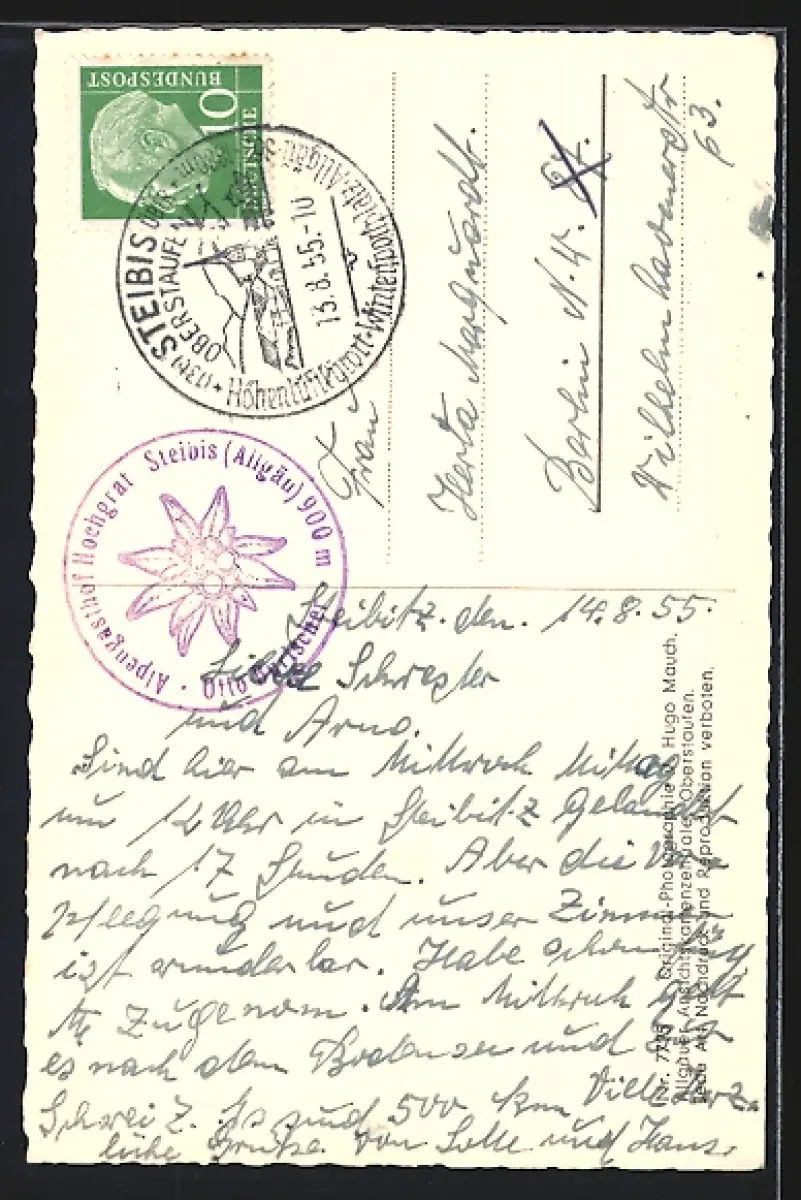 DEUTSCHE
BUNDESPOST
10
(13b) STEIBIS
OBERSTAUFEN
Höhenluftkurort · Wintersportplatz · Allgäu
15.8.55.-10
Alpengasthof Hochgrat Steibis (Allgäu) 900 m
Otto
Frau
Herta Marquardt.
Berlin N.
Wilhelmshavenerstr
63.
Steibitz. den. 14.8.55.
Liebe Schwester
und Arno.
Sind hier am Mittwoch Mittag
um 12 Uhr in Steibitz Gelandet
nach 17 Stunden. Aber die Ver=
pflegung und unser Zimmer
ist wunderbar. Habe schon
zugenom. Am Mittwoch geht
es nach dem Bodensee und
Schweiz. Es sind 500 km Viele herz=
liche Grüße von Lotte und Hans.
Original-Photographie Hugo Mauch.
Allgäuer Ansichtskartenzentrale Oberstaufen.
Jede Art Nachdruck und Reproduktion verboten.